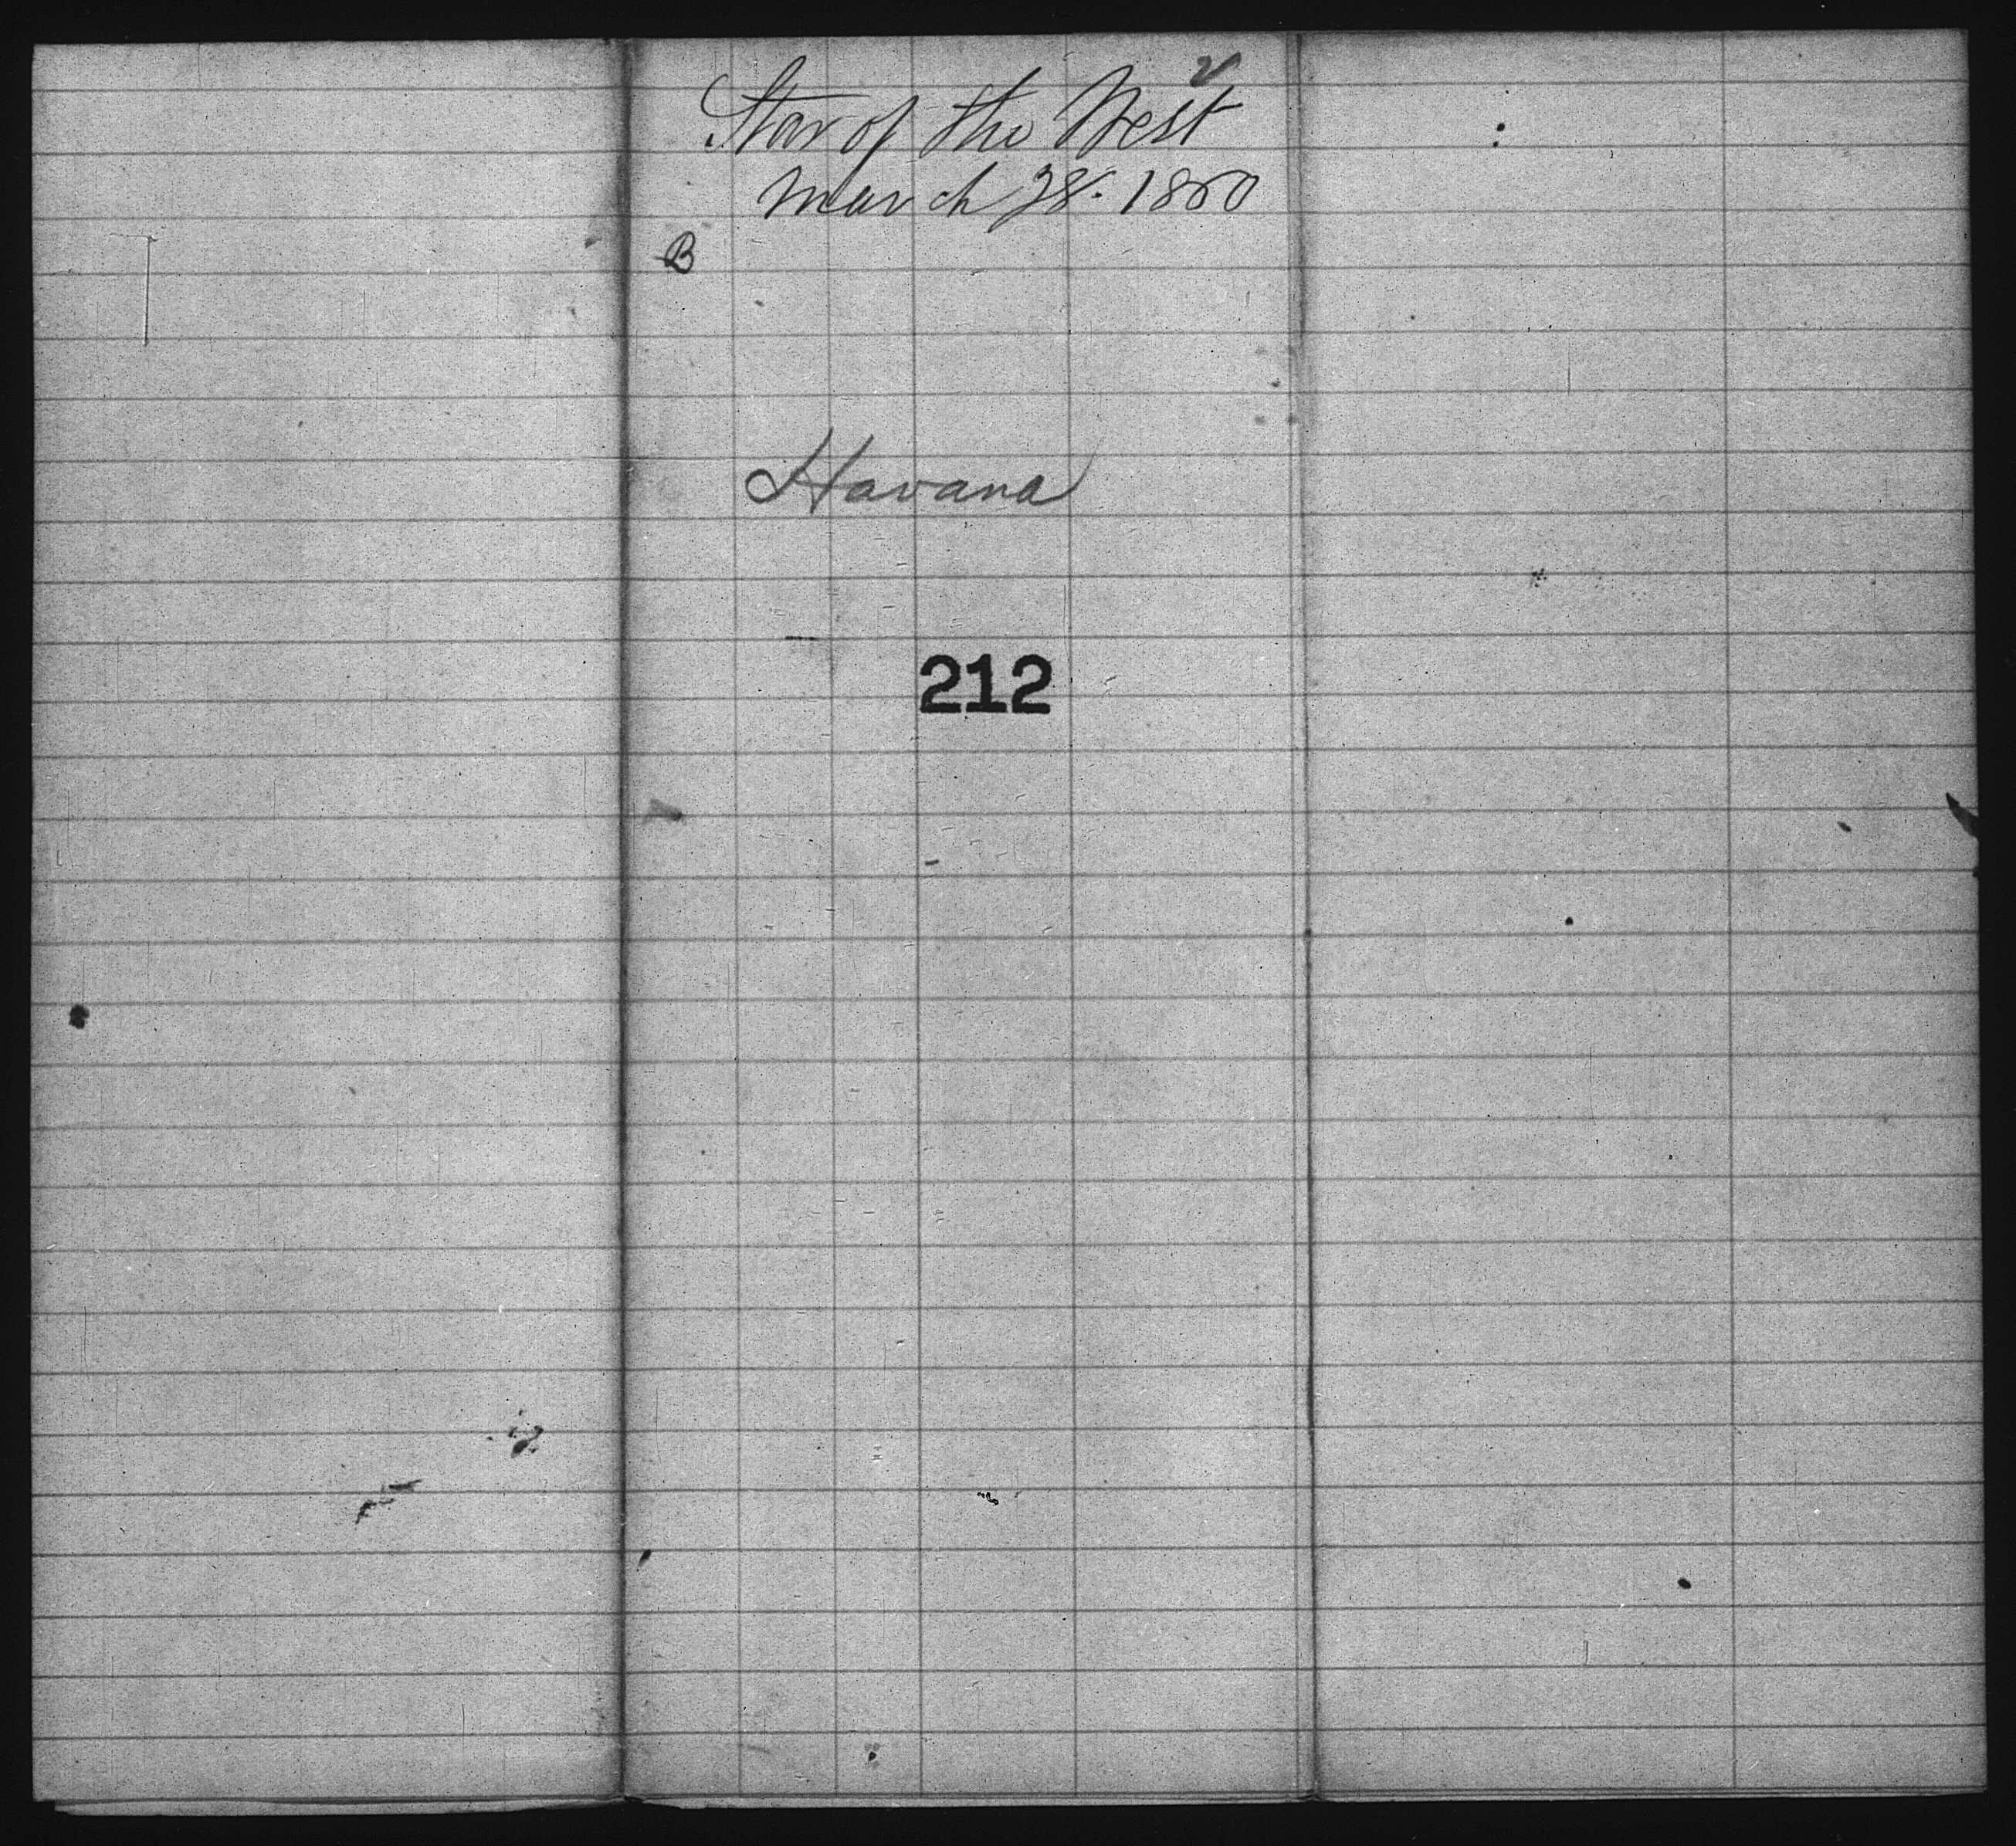 Star of the West
March 28. 1860
B
Havana
212